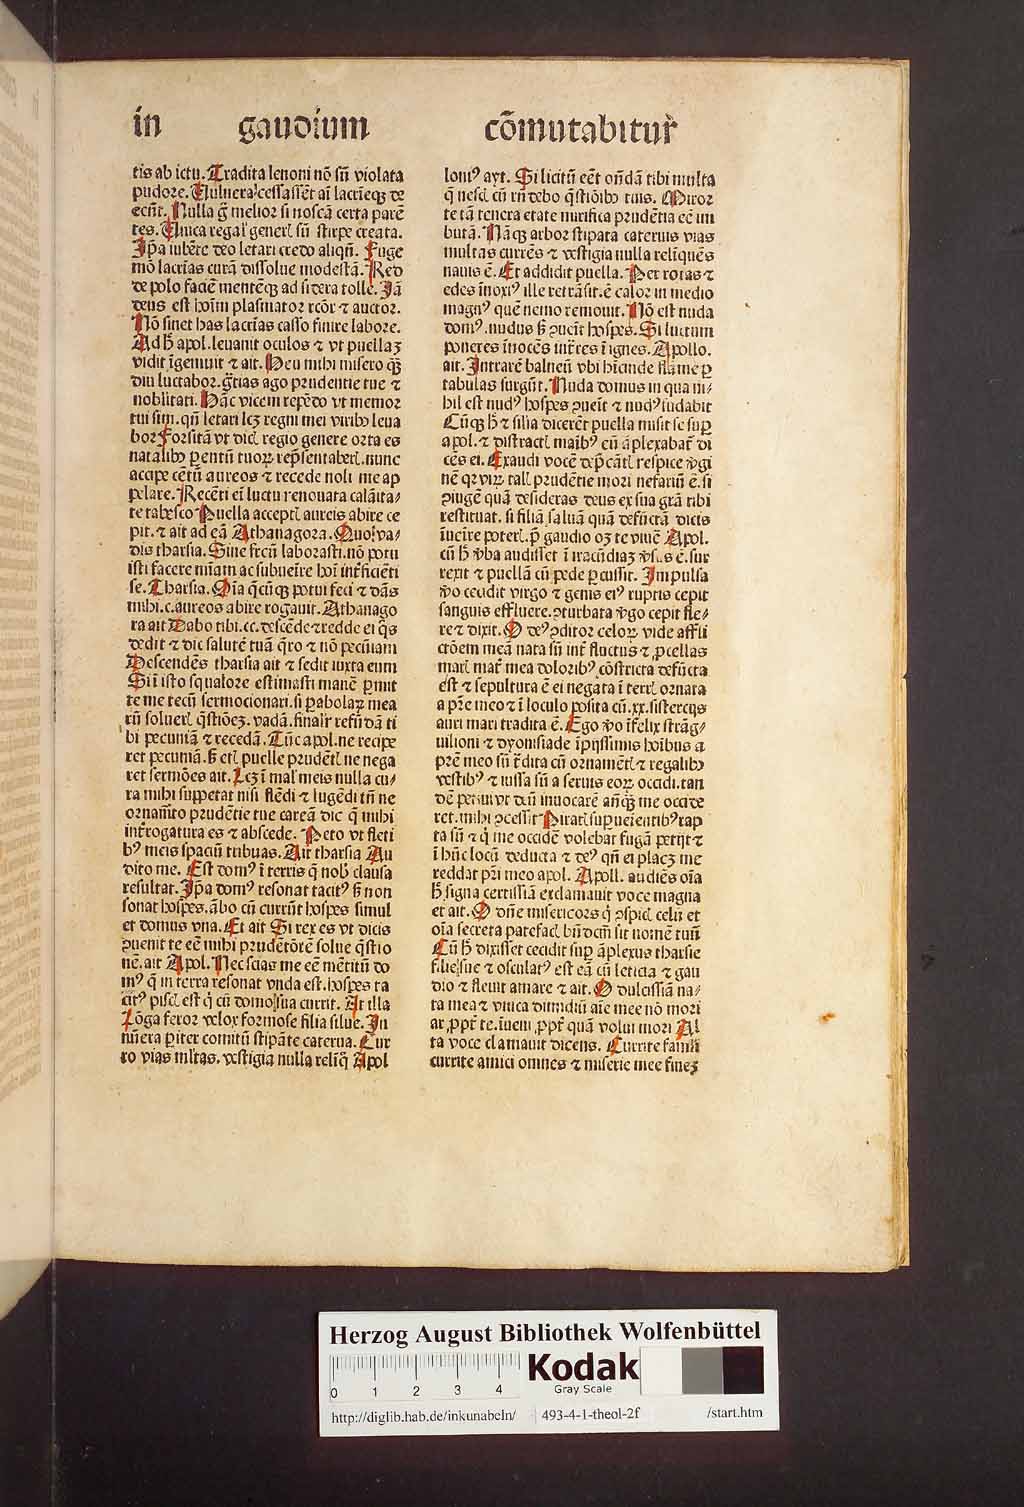 in gaudium cōmutabitur̄
tis ab ictu. Tradita lenoni nō sū violata
pudore. Uulnera cessassēt aī lacrīeqꝫ de
ecūt. Nulla ḡ melior si noscā certa parē
tes. Unica regal' generꝭ sū stirpe creata.
Ip̄a iubēte deo letari credo aliqn̄. Fuge
mō lacrīas curā dissolue modestā. Red
de polo faciē mentēqꝫ ad sidera tolle. Jā
deus est hoīm plasmator rcōr ⁊ auctor.
Nō sinet has lacrīas casso finire labore.
Ad h̄ apol. leuauit oculos ⁊ vt puellaꝫ
vidit īgemuit ⁊ ait. Heu mihi misero qꝫ
diu luctabor. gr̄tias ago prudentie tue ⁊
nobilitati. Hāc vicem repēdo vt memor
tui sim. qn̄ letari lcꝫ regni mei viribꝰ leua
bor Forsitā vt dicꝭ regio genere orta es
natalibꝰ ꝑentū tuoꝝ rep̄sentaberꝭ. nunc
accipe cētū aureos ⁊ recede noli me ap
pelare. Recēti eī luctu renouata calāita-
te tabesco Puella acceptꝭ aureis abire ce
pit. ⁊ ait ad eā Athanagora. Quo va-
dis tharsia. Sine fr̄ctū laborasti. nō potu
isti facere mīam ac subueīre hoī int̄ficiēti
se. Tharsia. Oīa q̄cūqꝫ potui feci ⁊ dās
mihi .c. aureos abire rogauit. Athanago
ra ait Dabo tibi .cc. descēde ⁊ redde ei q̄s
dedit ⁊ dic salutē tuā q̄ro ⁊ nō pecūiam
Descendēs tharsia ait ⁊ sedit iuxta eum
Si ī isto squalore estimasti manē ꝑmit
te me tecū sermocionari. si ꝑabolaꝝ mea
rū soluerꝭ q̄stiōeꝫ. vadā. finalr̄ refūdā ti
bi pecuniā ⁊ recedā. Tūc apol. ne recipe
ret pecuniā. sꝫ etꝭ puelle prudētꝭ ne nega
ret sermōes ait. Lcꝫ ī mal' meis nulla cu-
ra mihi suppetat nisi flēdi ⁊ lugēdi tn̄ ne
ornam̄to prudētie tue careā dic q̄ mihi
int̄rogatura es ⁊ abscede. Peto vt fleti
bꝰ meis spaciū tribuas. Ait tharsia Au
dito me. Est domꝰ ī terris q̄ nobꝭ clausa
resultat. Ip̄a domꝰ resonat tacitꝰ sꝫ non
sonat hospes. ābo cū currūt hospes simul
et domus vna. Et ait Si rex es vt dicis
ꝯuenit te eē mihi prudētōrē solue q̄stio
nē. ait Apol. Nec scias me eē mētitū do
mꝰ q̄ in terra resonat vnda est. hospes ta
citꝰ piscꝭ est q̄ cū domo sua currit. At illa
Lōga feror velox formose filia silue. In
nūera ꝑiter comitū stipāte caterua. Cur
ro vias ml̄tas. vestigia nulla relīq̄ Apol
loniꝰ ayt. Si licitū eēt on̄dā tibi multa
q̄ nescꝭ cū rn̄debo q̄stiōibꝰ tuis. Miror
te tā tenera etate mirifica prudētia eē im
butā. Nāqꝫ arbor stipata cateruis vias
multas currēs ⁊ vestigia nulla relīquēs
nauis ē. Et addidit puella. Per rotas ⁊
edes īnoxiꝰ ille retrāsit. ē calor in medio
magnꝰ quē nemo remouit. Nō est nuda
domꝰ. nudus sꝫ ꝯueīt hospes. Si luctum
poneres īnocēs intr̄es ī ignes. Apollo.
ait. Intrarē balneū vbi hīcinde flāme ꝑ
tabulas surgūt. Nuda domus in qua ni-
hil est nudꝰ hospes ꝯueīt ⁊ nudꝰ sudabit
Cūqꝫ h̄ ⁊ silia dicerēt puella misit se suꝑ
apol. ⁊ distractꝭ maībꝰ eū āplexabat̄ di
cēs ei. Exaudi vocē dep̄cātꝭ respice v̄gi
nē qꝛ viꝝ talꝭ prudētie mori nefariū ē. si
ꝯiugē quā desideras deus ex sua grā tibi
restituat. si filiā saluā quā defūctā dicis
īueīre poterꝭ. p̄ gaudio oꝫ te viuē Apol.
cū h̄ v̄ba audisset ī iracūdiaꝫ v̄s.s ē. sur
rexit ⁊ puellā cū pede ꝑcussit. Impulsa
v̄o cecidit virgo ⁊ genis eiꝰ ruptis cepit
sanguis effluere. ꝯturbata v̄go cepit fle-
re ⁊ dixit. O deꝰ ꝯditor celoꝝ vide affli
ctōem meā nata sū int̄ fluctus ⁊ ꝓcellas
marꝭ mat̄ mea doloribꝰ cōstricta defūcta
est ⁊ sepultura ē ei negata ī terrꝭ ornata
a pr̄e meo ⁊ ī loculo posita cū .xx. sistercijs
auri mari tradita ē. Ego v̄o īfelix strāg-
uilioni ⁊ dyonisiade īpijssimis hoībus a
prē meo sū tr̄dita cū ornamētꝭ ⁊ regalibꝰ
vestibꝰ ⁊ iussa sū a seruis eoꝝ occidi. tan
dē petiui vt deū inuocarē anq̄ꝫ me occide
ret. mihi ꝯcessit Piratꝭ suꝑueientibꝰ rap
ta sū ⁊ q̄ me occidē volebat fugā petijt ⁊
ī hūc locū deducta ⁊ deꝰ qn̄ ei placꝫ me
reddat pr̄i meo apol. Apoll. audiēs oīa
h̄ signa certissiā exclamauit voce magna
et ait. O dn̄e misericors q̄ ꝯspicꝭ celū et
oīa secreta patefacꝭ bn̄dcm̄ sit nomē tuū
Cū h̄ dixisset cecidit suꝑ āplexus tharsie
filie sue ⁊ osculatꝰ est eā cū leticia ⁊ gau
dio ⁊ fleuit amare ⁊ ait. O dulcissiā na-
ta mea ⁊ vnica dimidiū aīe mee nō mori
ar ꝓpt̄ te. īueni ꝓpt̄ quā volui mori Al
ta voce clamauit dicens. Currite famulꝭ
currite amici omnes ⁊ miserie mee fineꝫ
Herzog August Bibliothek Wolfenbüttel
0 1 2 3 4
Kodak
Gray Scale
http://diglib.hab.de/inkunabeln/ 493-4-1-theol-2f /start.htm